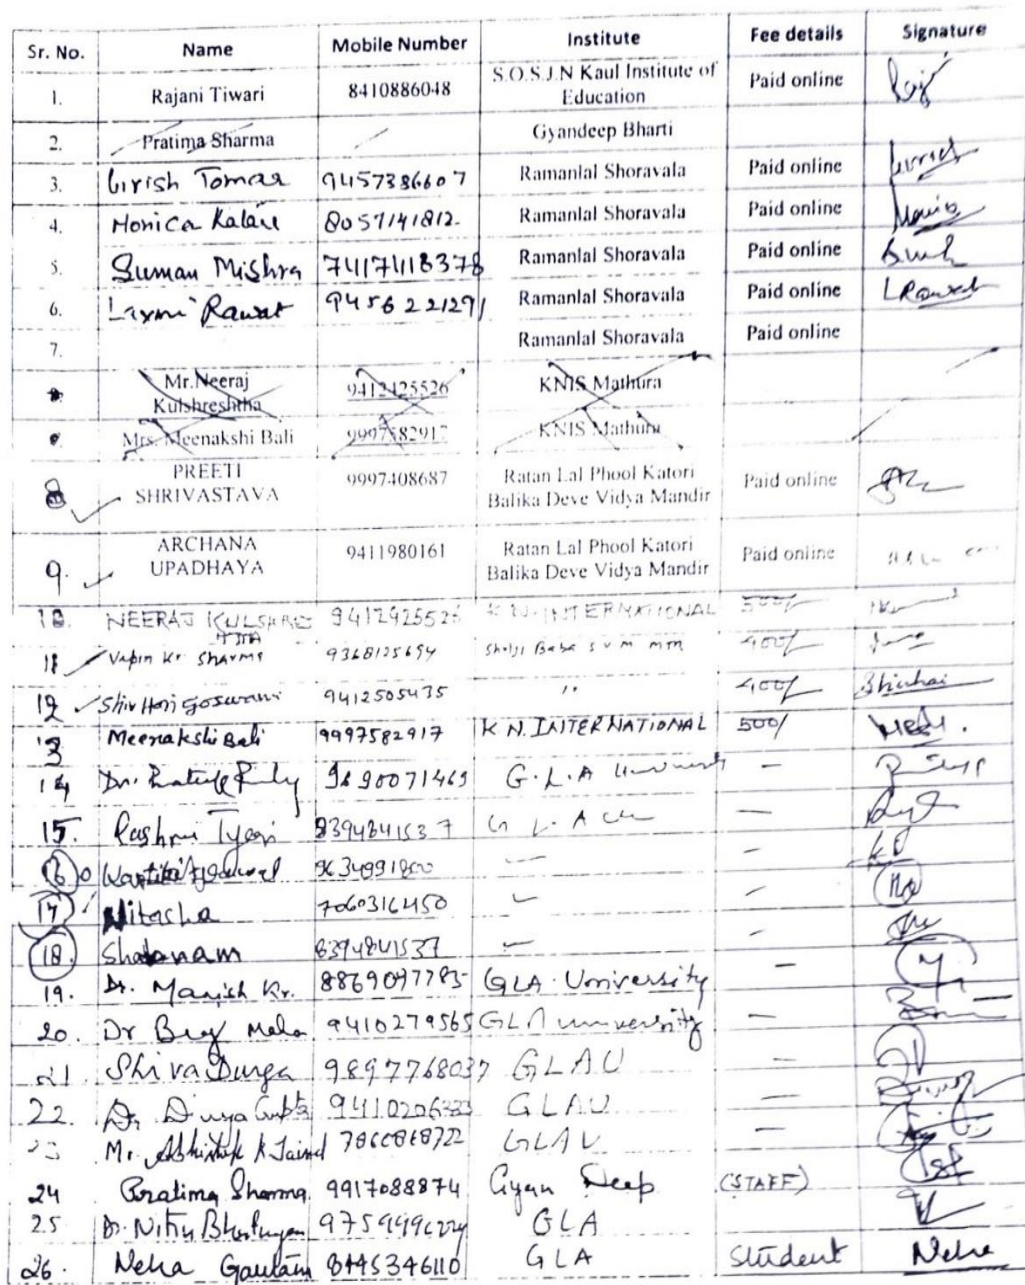 Sr. No. Name Mobile Number Institute Fee details Signature
1. Rajani Tiwari 8410886048 S.O.S.J.N Kaul Institute of Education Paid online
2. Pratima Sharma Gyandeep Bharti
3. Girish Tomar 9457386607 Ramanlal Shoravala Paid online
4. Monica Kalani 8057141812 Ramanlal Shoravala Paid online
5. Suman Mishra 7417418378 Ramanlal Shoravala Paid online
6. Laxmi Rawat 9456221291 Ramanlal Shoravala Paid online LRawat
7. Ramanlal Shoravala Paid online
Mr.Neeraj Kulshreshtha 9412425526 KNIS Mathura
Mrs. Meenakshi Bali 9997582917 KNIS Mathura
8 PREETI SHRIVASTAVA 9997408687 Ratan Lal Phool Katori Balika Deve Vidya Mandir Paid online
9. ARCHANA UPADHAYA 9411980161 Ratan Lal Phool Katori Balika Deve Vidya Mandir Paid online
10. NEERAJ KULSHRESHTHA K.N. INTERNATIONAL 500/
11 Vipin Kr Sharma 9368125694 Shriji Baba S V M 400/
12 Shiv Hari Goswami 9412505435 " 400/
13 Meenakshi Bali 9997582917 K.N. INTERNATIONAL 500/
14 Dr. 9690071469 G.L.A —
15. Rashmi Tyagi G L A —
16 Agarwal —
17 Nitasha 7060316450 —
18. Shabanam 8394841537 —
19. Dr. Manish Kr. 8869097785 GLA University —
20. Dr 9410279565 GLA university —
21 Shiva Durga 9897768037 GLAU —
22. Dr. Divya Gupta GLAU —
23 Mr. Abhishek GLAU —
24 Pratima Sharma 9917088874 Gyan Deep (STAFF)
25. Dr. Nitin GLA
26. Neha Gautam 8445346110 GLA Student Neha